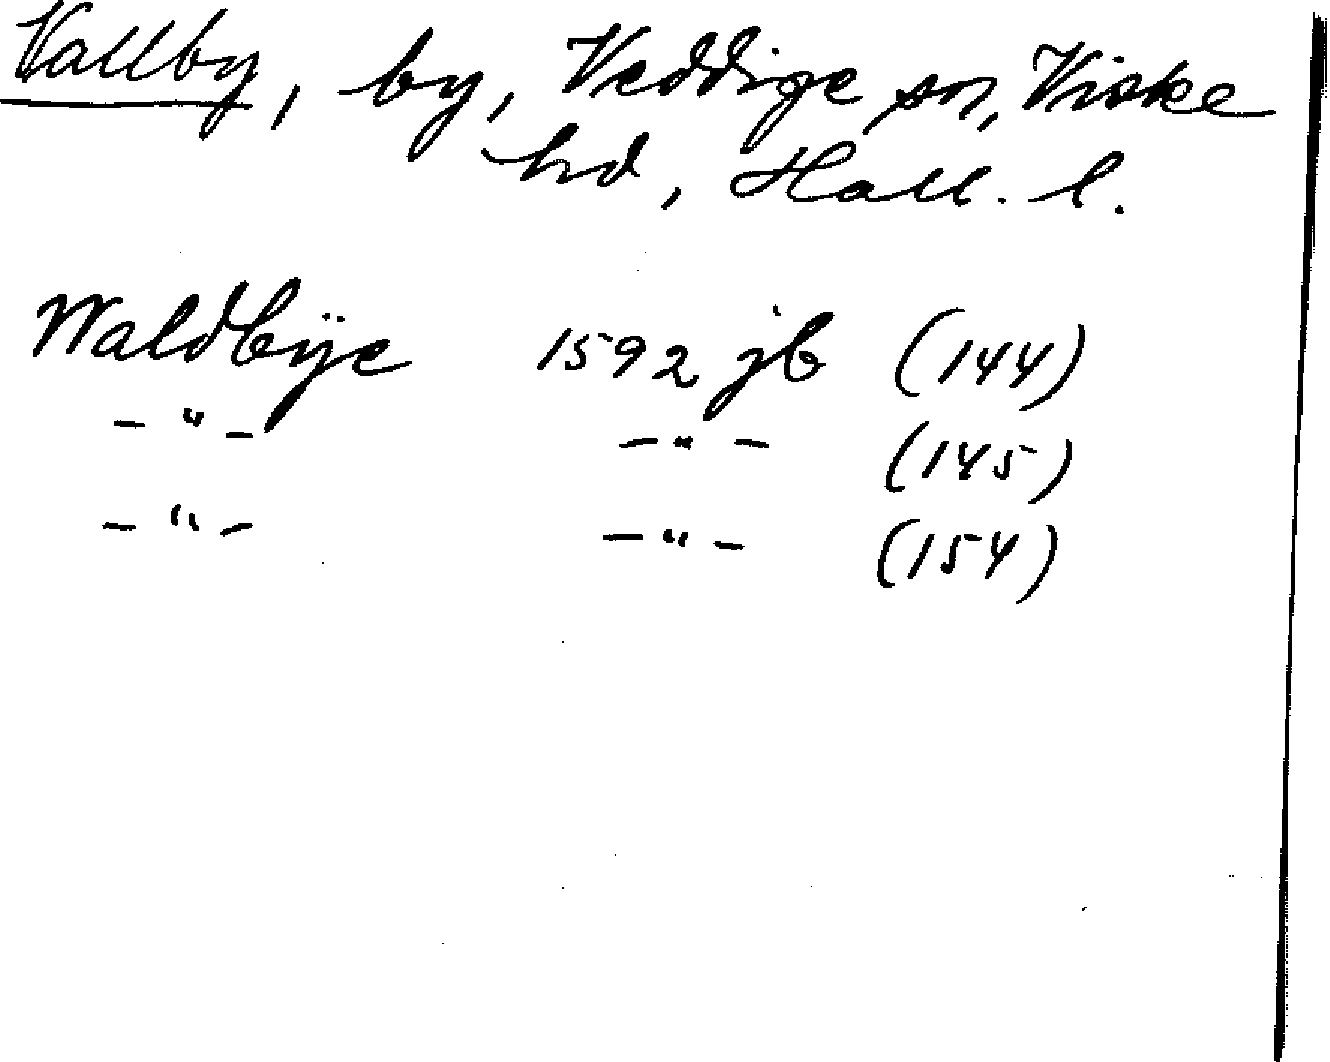 Vallby, by, Veddige sn, Viske
hd, Hall. l.
Waldbÿe 1592 jb (144)
-"- -"- (145)
-"- -"- (154)